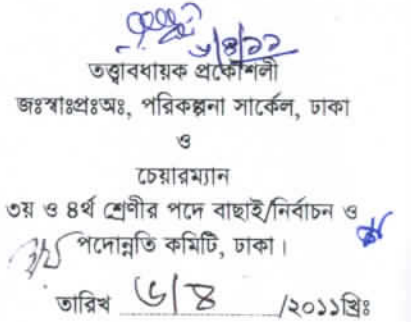 ৬/৪/১১
তত্ত্বাবধায়ক প্রকৌশলী
জঃস্বাঃপ্রঃঅঃ, পরিকল্পনা সার্কেল, ঢাকা
ও
চেয়ারম্যান
৩য় ও ৪র্থ শ্রেণীর পদে বাছাই/নির্বাচন ও
পদোন্নতি কমিটি, ঢাকা।
তারিখ ৬/৪ /২০১১খ্রিঃ